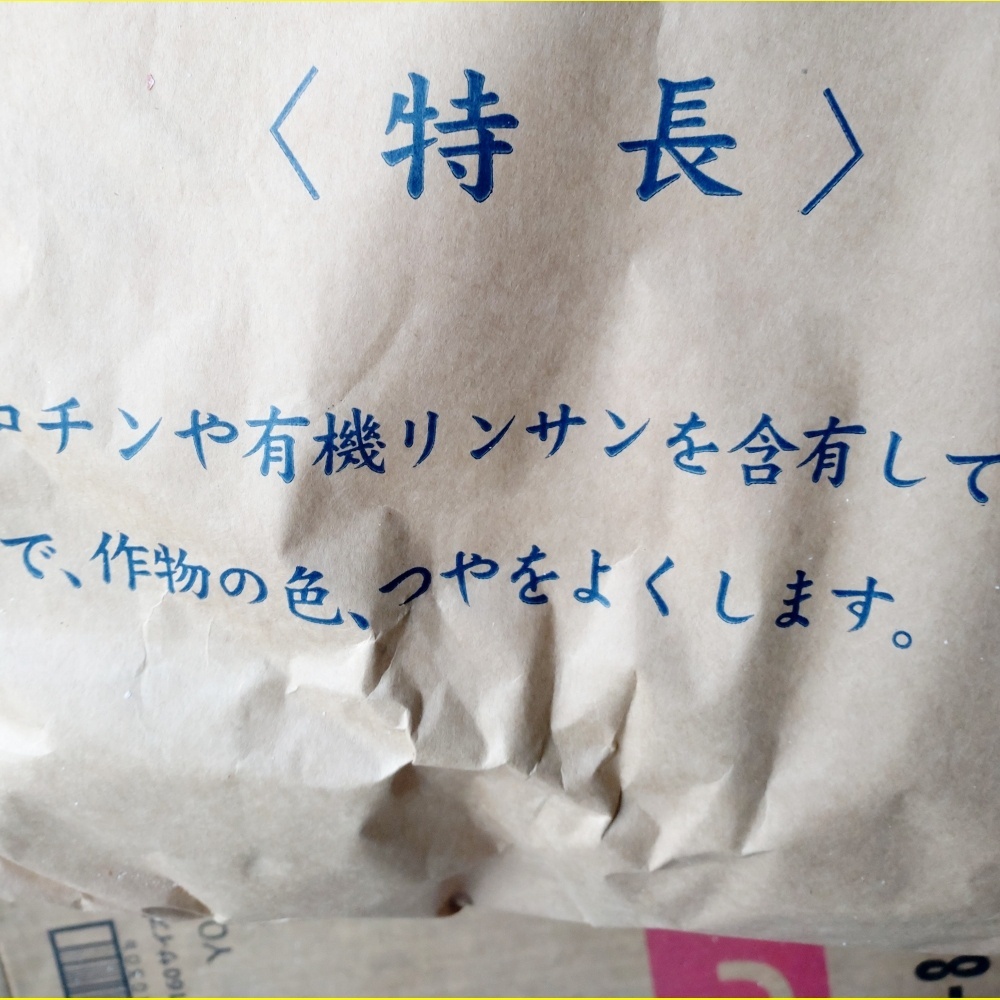 〈特長〉
コチンや有機リンサンを含有して
で、作物の色、つやをよくします。